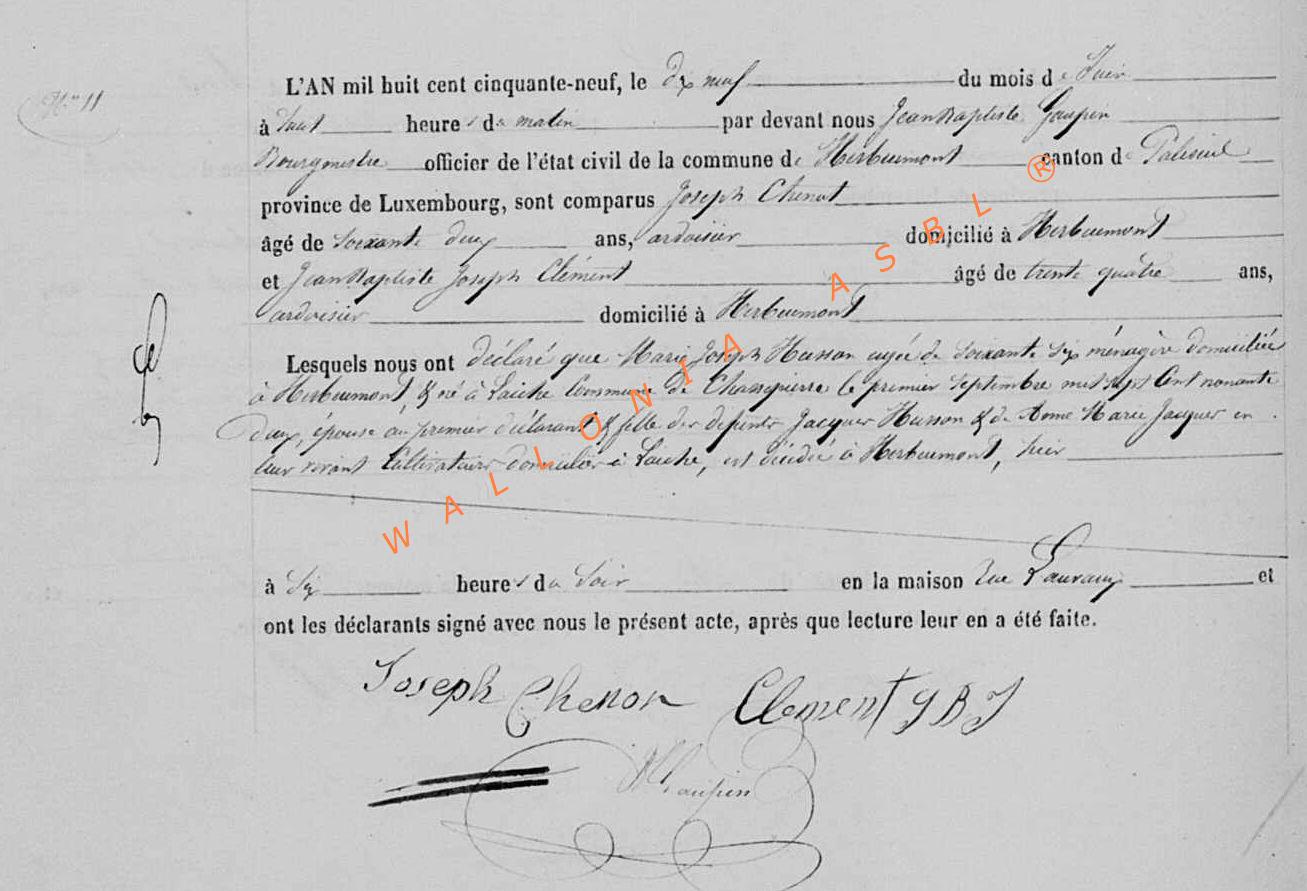 N° 11
L'AN mil huit cent cinquante-neuf, le dix neuf du mois de Juin
à huit heures du matin par devant nous Jean Baptiste Gaupin
Bourgmestre officier de l'état civil de la commune de Herbeumont canton de Paliseul
province de Luxembourg, sont comparus Joseph Chenot
âgé de soixante deux ans, ardoisier domicilié à Herbeumont
et Jean Baptiste Joseph Clément âgé de trente quatre ans,
ardoisier domicilié à Herbeumont
Lesquels nous ont déclaré que Marie Joseph Husson agée de soixante six ménagère domiciliée
à Herbeumont & né à Laiche Commune de Chassepierre le premier septembre mil sept Cent nonante
deux, épouse au premier déclarant & fille des defunts Jacques Husson & de Anne Marie Jacques en
leur vivant Cultivateurs domiciliés à Laiche, est décédée à Herbeumont, hier
à six heures du soir en la maison rue Lauvaux et
ont les déclarants signé avec nous le présent acte, après que lecture leur en a été faite.
Joseph Chenot Clement J B J
Gaupin
WALLONIA ASBL ®